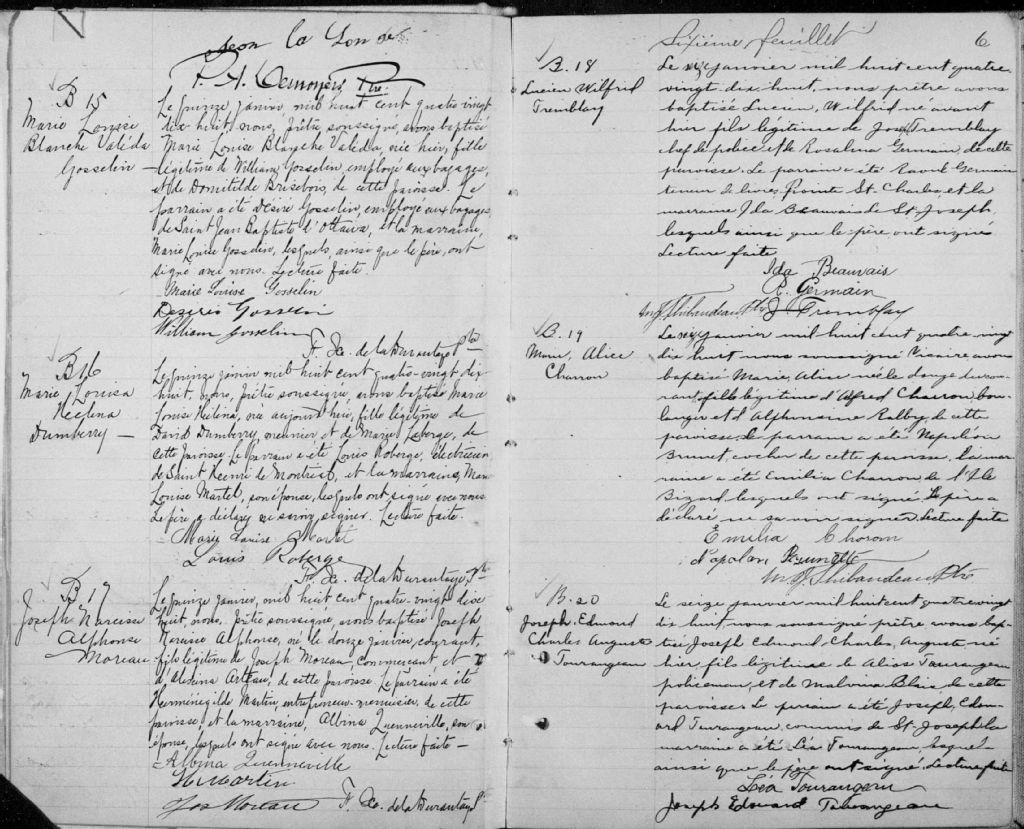 Leon la Londe
P. A. Ptre
B 15
Marie Louise
Blanche Valéda
Gosselin —
Le quinze janvier mil huit cent quatre vingt
dix huit nous, Prêtre soussigné, avons baptisé
Marie Louise Blanche Valéda, née hier, fille
légitime de William Gosselin employé aux bagages,
et de Domitilde Brisebois, de cette paroisse. Le
parrain a été Désiré Gosselin, employé aux bagages,
de Saint Jean Baptiste d'Ottawa, et la marraine,
Marie Louise Gosselin, lesquels, ainsi que le père, ont
signé avec nous. Lecture faite.
Marie Louise Gosselin
Desiréé Gosselin
William Gosselin
F. Xe. de la Durantaye Ptre
B 16
Marie Louisa
Heclina
Dumberry —
Le quinze janvier mil huit cent quatre-vingt dix
huit, nous, Prêtre soussigné, avons baptisé Marie
Louise Héléna, née aujourd'hui, fille légitime de
David Dumberry, meunier et de Marie Leberge, de
cette Paroisse. Le parrain a été Louis Roberge, électricien
de Saint Henri de Montréal, et la marraine, Marie
Louise Martel, son épouse, lesquels ont signé avec nous
Le père a déclaré ne savoir signer. Lecture faite.
Marie Louise Martel
Louis Roberge
F. Xe. de la Durantaye Ptre
B 17
Joseph Narcisse
Alphonse
Moreau
Le quinze janvier, mil huit cent quatre-vingt dix
huit, nous, Prêtre soussigné, avons baptisé Joseph
Narcisse Alphonse, né le douze janvier, courant,
fils légitime de Joseph Moreau, commerçant et
d' Arteau, de cette paroisse. Le parrain a été
Herménégilde Martin, entrepreneur-menuisier, de cette
paroisse, et la marraine, Albina Quenneville, son
épouse, lesquels ont signé avec nous. Lecture faite —
Albina Quenneville
H. Martin
Jos Moreau F. Xe. de la Durantaye Ptr
Sixième feuillet 6
B. 18
Lucien Wilfrid
Tremblay
Le janvier mil huit cent quatre
vingt dix huit, nous prêtre avons
baptisé Lucien, Wilfrid né avant
hier fils légitime de Jos Tremblay
chef de police et de Rosalina Germain, de cette
paroisse. Le parrain a été Raoul Germain
teneur de livres, Pointe St. Charles, et la
marraine Ida Beauvais de St. Joseph,
lesquels ainsi que le père ont signé
Lecture faite
Ida Beauvais
R. Germain
J Thibaudeau Ptre J Tremblay
B. 19
Marie, Alice
Charron
Le janvier mil huit cent quatre vingt
dix huit nous soussigné Vicaire, avons
baptisé Marie, Alice née le douze du cou-
rant, fille légitime d'Alfred Charron, bou-
langer et d'Alphonsine Ralby, de cette
paroisse. Le parrain a été Napoléon
Brunet, cocher de cette paroisse, la mar-
raine a été Emilia Charron, de l'Ile
Bizard, lesquels ont signé. Le père a
déclaré ne savoir signer, Lecture faite
Emilia Chorom
M J Thibaudeau Ptre
B. 20
Joseph, Edmond
Charles Auguste
Tourangeau
Le seize janvier mil huit cent quatre vingt
dix huit nous soussigné prêtre avons bap-
tisé Joseph Edmond, Charles, Auguste, né
hier, fils légitime de Tourangeau
policeman, et de Malvina Blais de cette
paroisse. Le parrain a été Joseph, Edou-
ard Tourangeau, commis de St. Joseph la
marraine a été Léa Tourangeau, lesquels
ainsi que le père ont signé. Lecture faite
Léa Tourangeau
Joseph Edouard Tourangeau